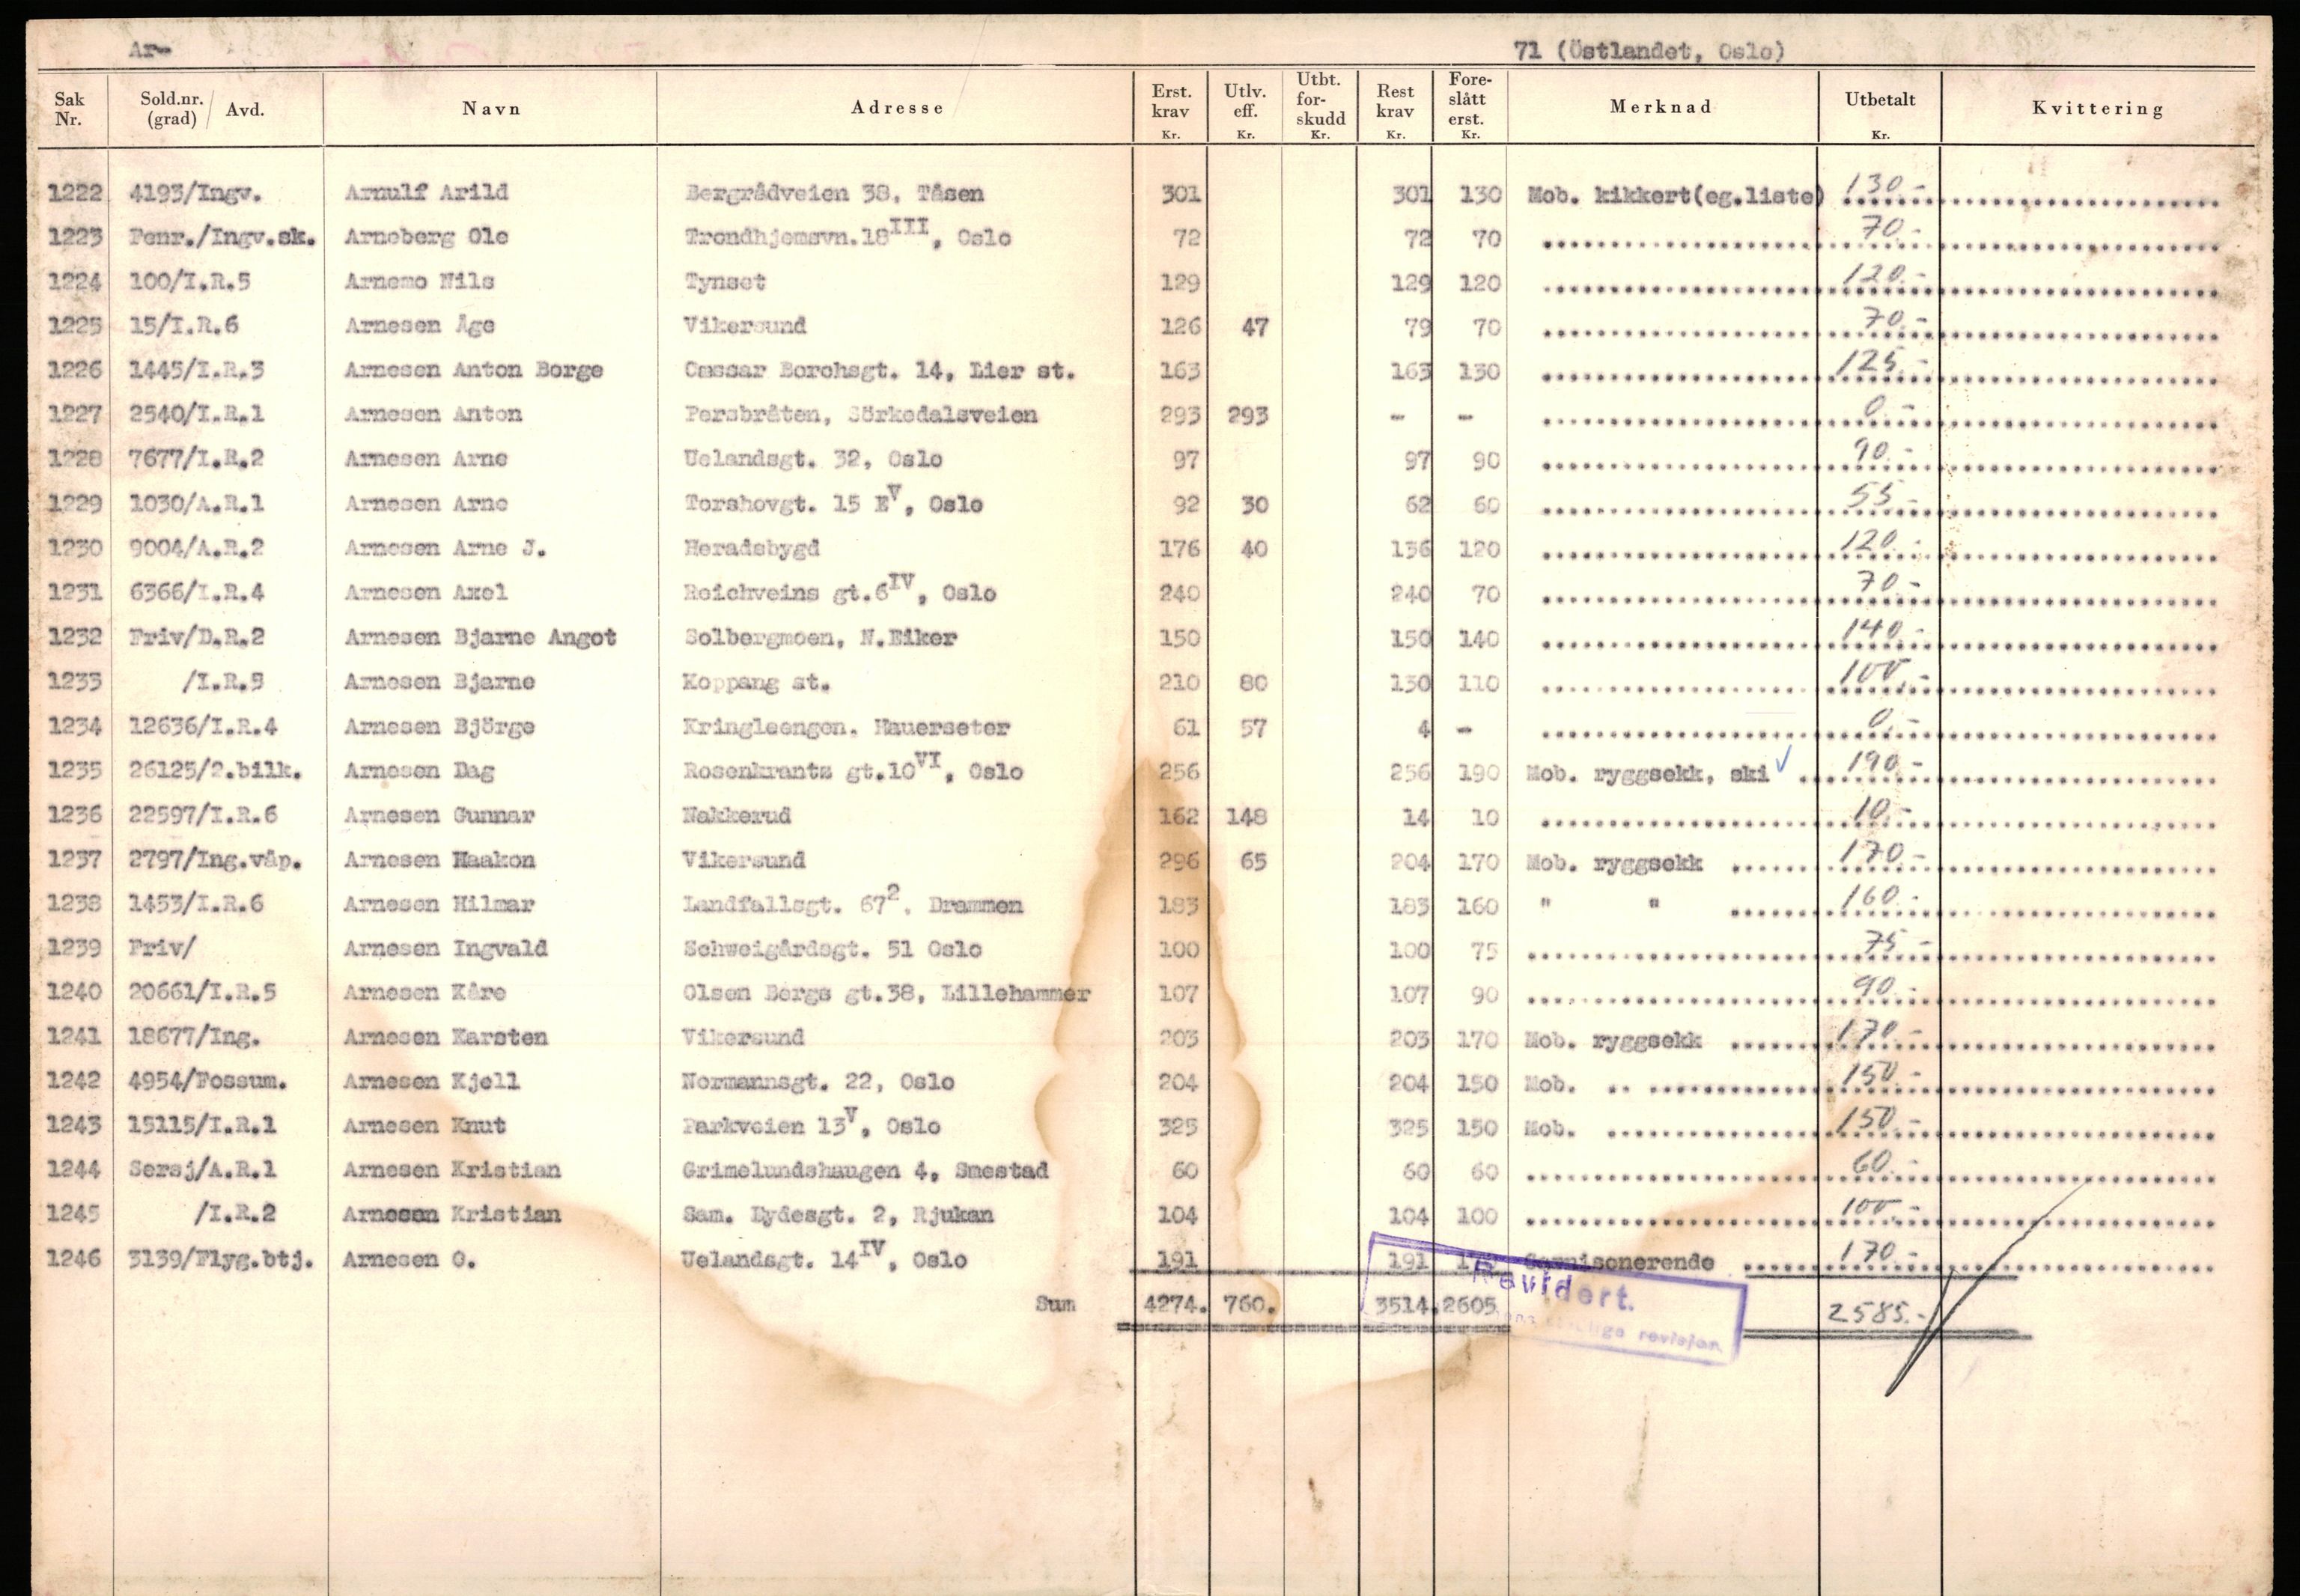 Ar- 71 (Östlandet, Oslo)
Sak Nr. Sold.nr. (grad) / Avd. Navn Adresse Erst. krav Kr. Utlv. eff. Kr. Utbt. for- skudd Kr. Rest krav Kr. Fore- slått erst. Kr. Merknad Utbetalt Kr. Kvittering
1222 4193/Ingv. Arnulf Arild Bergrådveien 38, Tåsen 301 301 130 Mob. kikkert(eg.liste) 130.-
1223 Fenr./Ingv.sk. Arneberg Ole Trondhjemsvn.18III, Oslo 72 72 70 70.-
1224 100/I.R.5 Arnemo Nils Tynset 129 129 120 120.-
1225 15/I.R.6 Arnesen Åge Vikersund 126 47 79 70 70.-
1226 1445/I.R.3 Arnesen Anton Borge Cæsar Borchsgt. 14, Lier st. 163 163 130 125.-
1227 2540/I.R.1 Arnesen Anton Persbråten, Sörkedalsveien 293 293 - - 0.-
1228 7677/I.R.2 Arnesen Arne Uelandsgt. 32, Oslo 97 97 90 90.-
1229 1030/A.R.1 Arnesen Arne Torshovgt. 15 EV, Oslo 92 30 62 60 55.-
1230 9004/A.R.2 Arnesen Arne J. Heradsbygd 176 40 136 120 120.-
1231 6366/I.R.4 Arnesen Axel Reichveins gt.6IV, Oslo 240 240 70 70.-
1232 Priv/D.R.2 Arnesen Bjarne Angot Solbergmoen, N.Eiker 150 150 140 140.-
1233 /I.R.5 Arnesen Bjarne Koppang st. 210 80 130 110 100.-
1234 12636/I.R.4 Arnesen Björge Kringleengen. Hauerseter 61 57 4 - 0.-
1235 26125/2.bilk. Arnesen Dag Rosenkrantz gt.10VI, Oslo 256 256 190 Mob. ryggsekk, ski ✓ 190.-
1236 22597/I.R.6 Arnesen Gunnar Nakkerud 162 148 14 10 10.-
1237 2797/Ing.våp. Arnesen Haakon Vikersund 296 65 204 170 Mob. ryggsekk 170.-
1238 1453/I.R.6 Arnesen Hilmar Landfallsgt. 672, Drammen 183 183 160 " " 160.-
1239 Priv/ Arnesen Ingvald Schweigårdsgt. 51 Oslo 100 100 75 75.-
1240 20661/I.R.5 Arnesen Kåre Olsen Bergs gt.38, Lillehammer 107 107 90 90.-
1241 18677/Ing. Arnesen Karsten Vikersund 203 203 170 Mob. ryggsekk 170.-
1242 4954/Fossum. Arnesen Kjell Normannsgt. 22, Oslo 204 204 150 Mob. 150.-
1243 15115/I.R.1 Arnesen Knut Parkveien 13V, Oslo 325 325 150 Mob. 150.-
1244 Sersj/A.R.1 Arnesen Kristian Grimelundshaugen 4, Smestad 60 60 60 60.-
1245 /I.R.2 Arnesen Kristian Sam. Eydesgt. 2, Rjukan 104 104 100 100.-
1246 3139/Flyg.btj. Arnesen O. Uelandsgt. 14IV, Oslo 191 191 Garnisonerende 170.-
Revidert.
Sum 4274. 760. 3514.2605 2585.-
revisjon